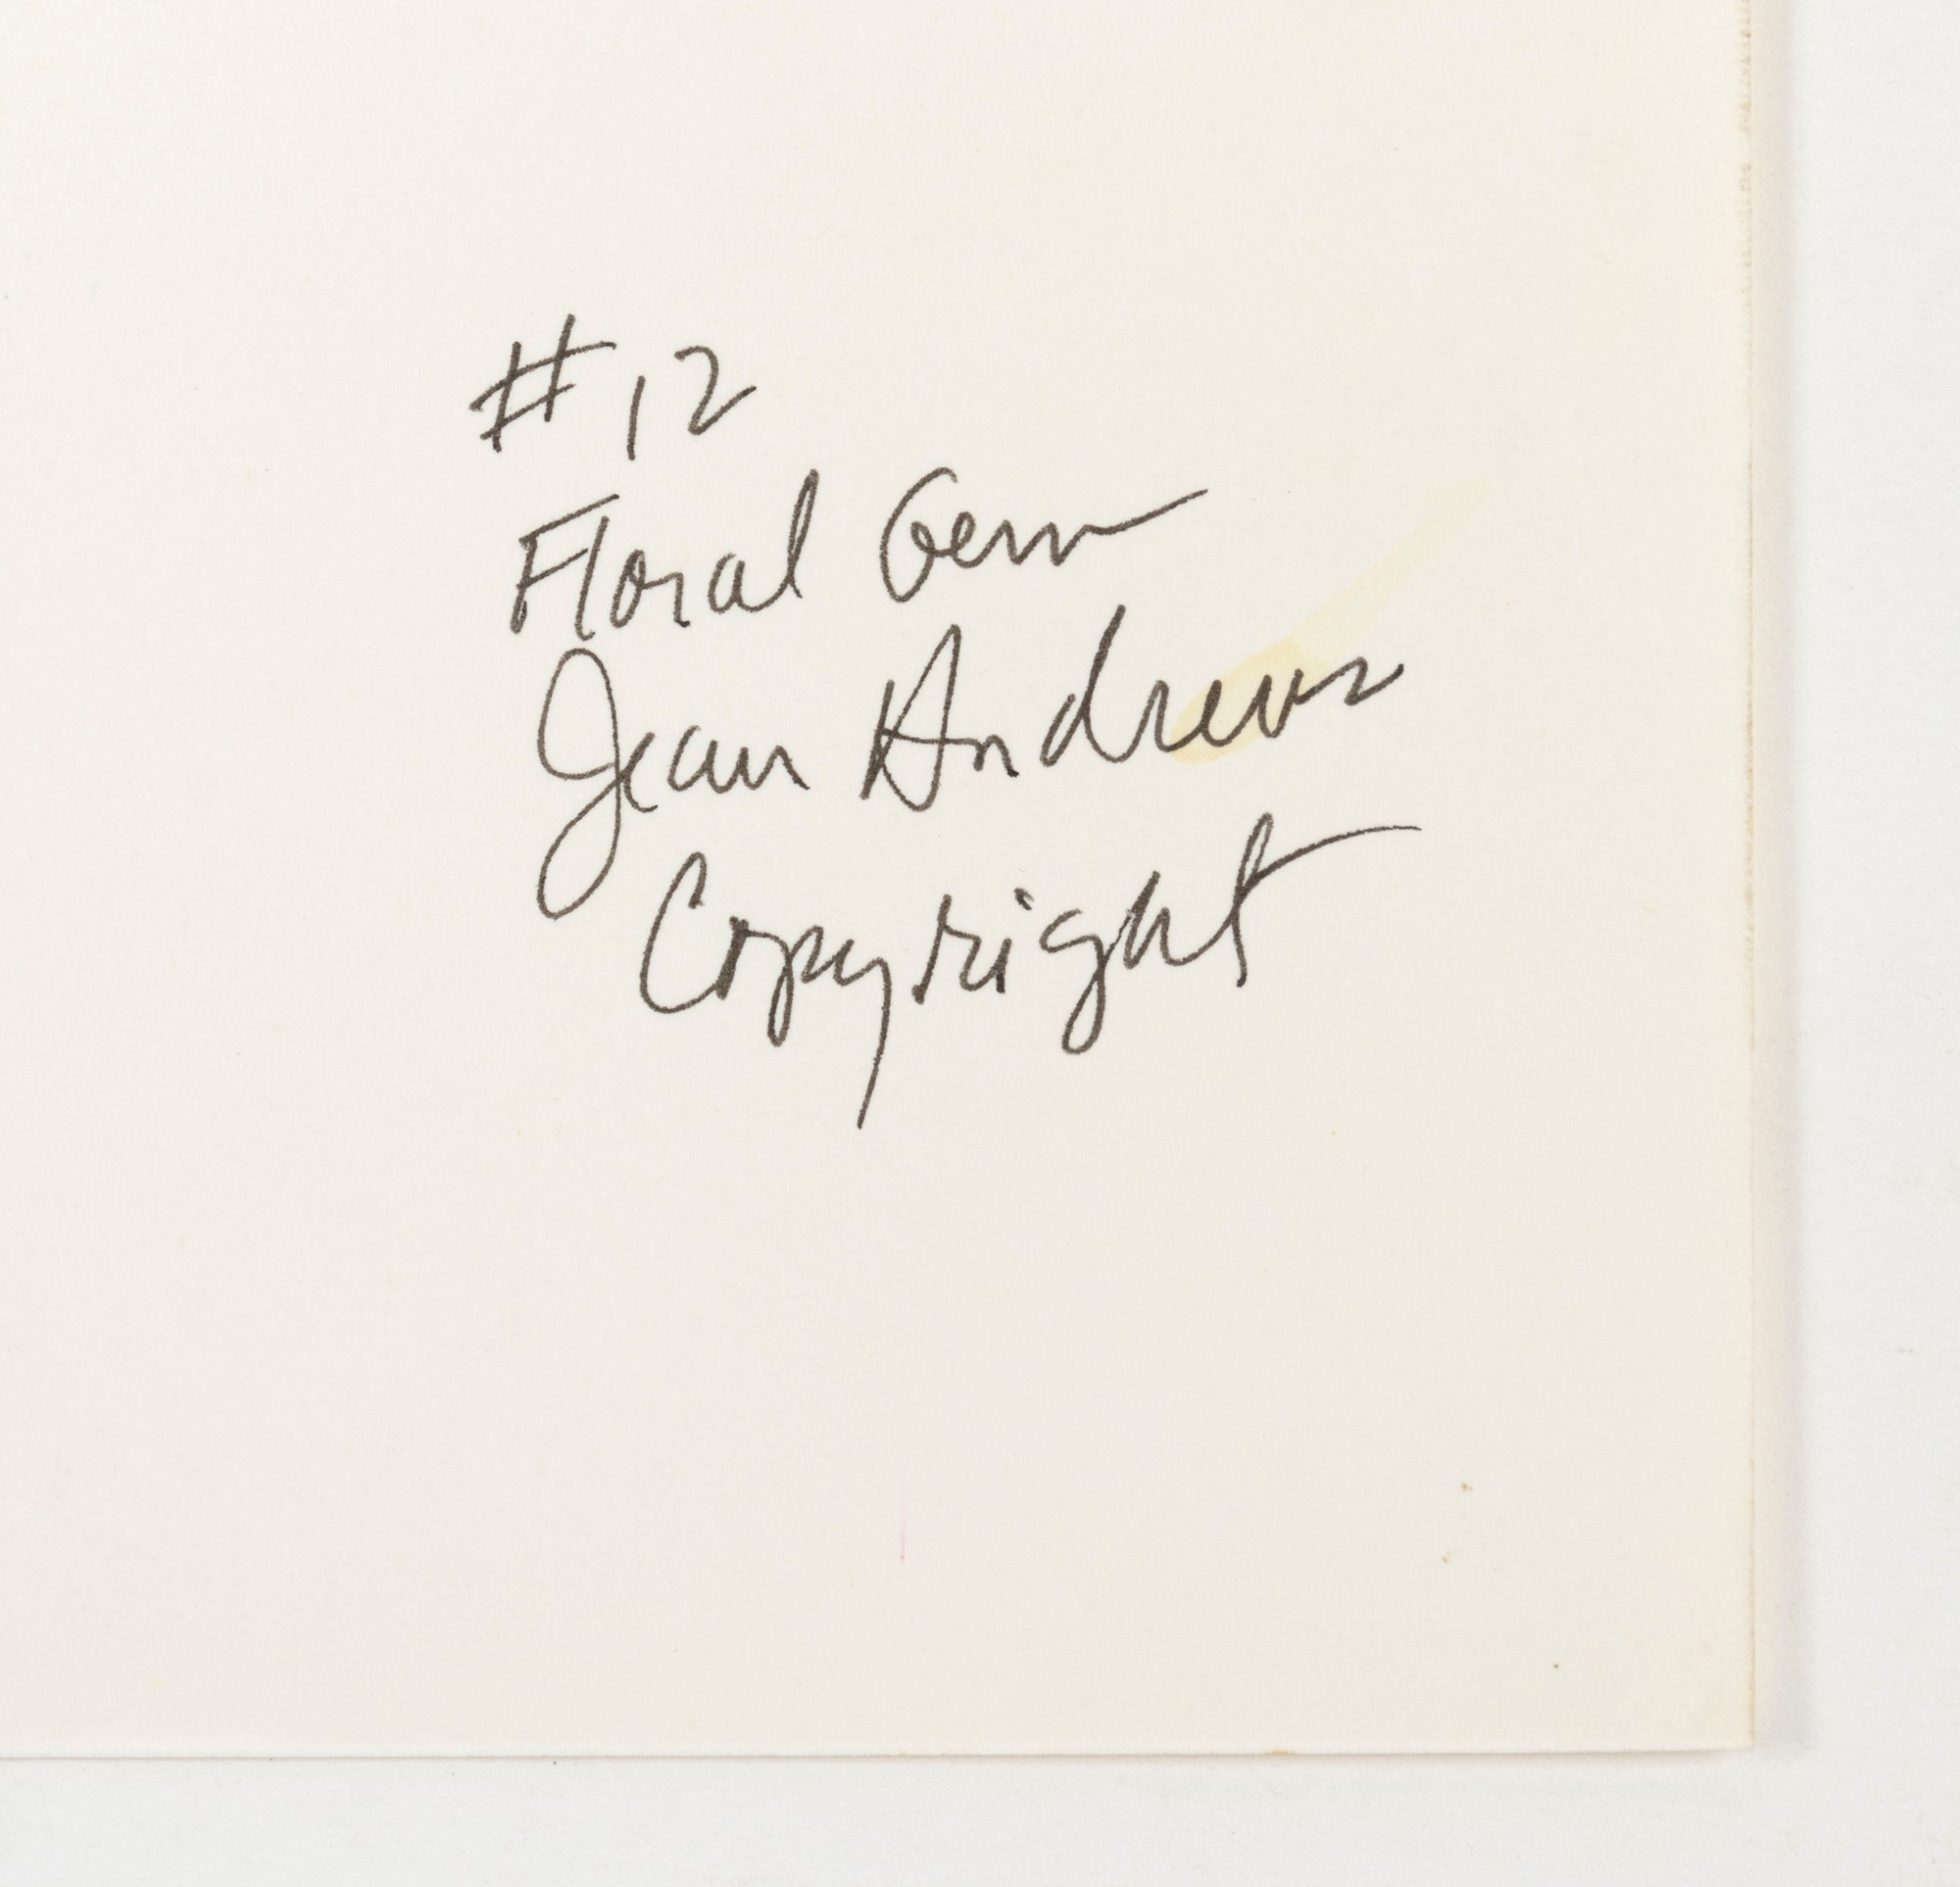 #12
Floral Gem
Jean Andrews
Copyright